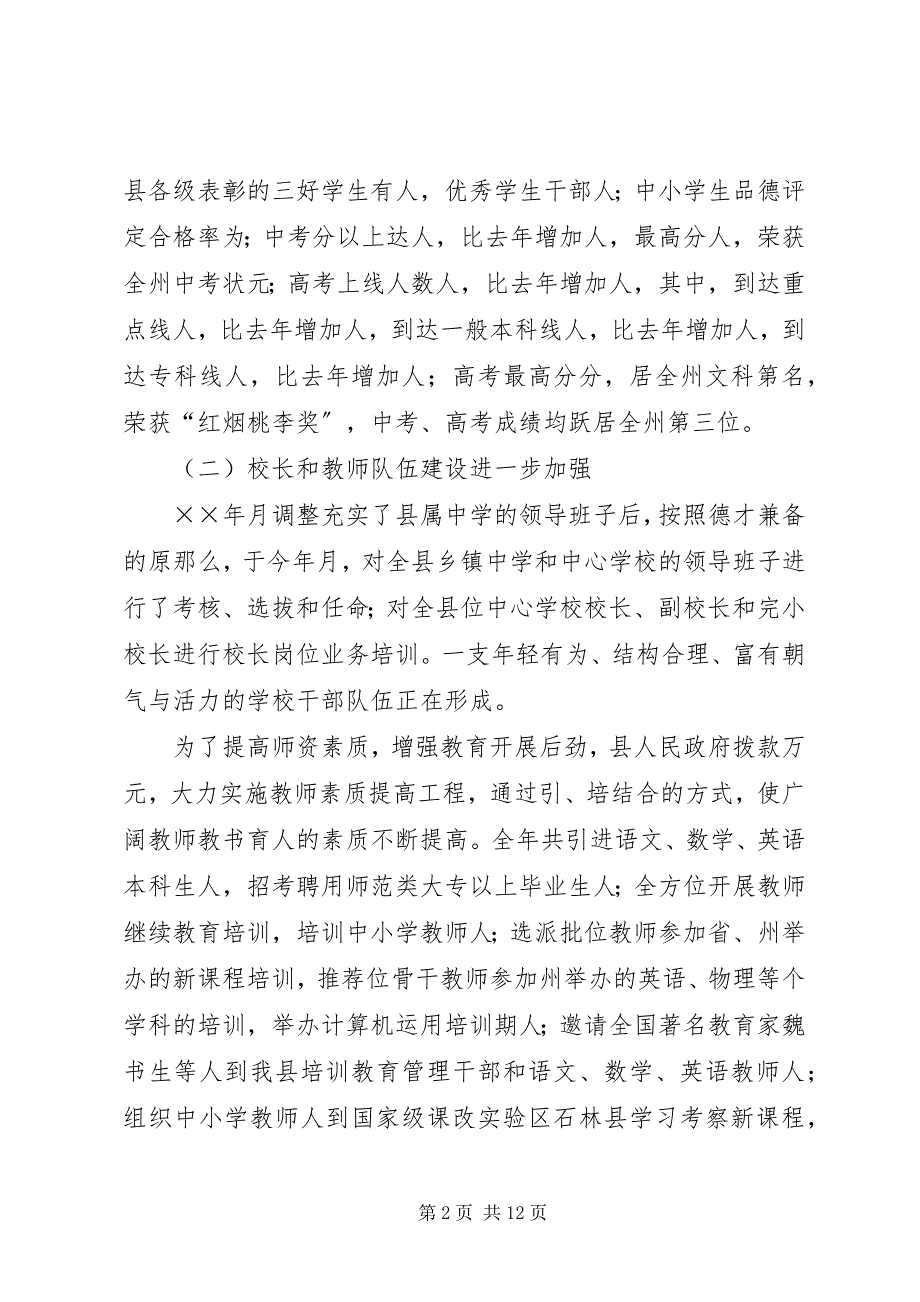 县各级表彰的三好学生有人，优秀学生干部人；中小学生品德评
定合格率为；中考分以上达人，比去年增加人，最高分人，荣获
全州中考状元；高考上线人数人，比去年增加人，其中，到达重
点线人，比去年增加人，到达一般本科线人，比去年增加人，到
达专科线人，比去年增加人；高考最高分分，居全州文科第名，
荣获“红烟桃李奖〞，中考、高考成绩均跃居全州第三位。
（二）校长和教师队伍建设进一步加强
××年月调整充实了县属中学的领导班子后，按照德才兼备
的原那么，于今年月，对全县乡镇中学和中心学校的领导班子进
行了考核、选拔和任命；对全县位中心学校校长、副校长和完小
校长进行校长岗位业务培训。一支年轻有为、结构合理、富有朝
气与活力的学校干部队伍正在形成。
为了提高师资素质，增强教育开展后劲，县人民政府拨款万
元，大力实施教师素质提高工程，通过引、培结合的方式，使广
阔教师教书育人的素质不断提高。全年共引进语文、数学、英语
本科生人，招考聘用师范类大专以上毕业生人；全方位开展教师
继续教育培训，培训中小学教师人；选派批位教师参加省、州举
办的新课程培训，推荐位骨干教师参加州举办的英语、物理等个
学科的培训，举办计算机运用培训期人；邀请全国著名教育家魏
书生等人到我县培训教育管理干部和语文、数学、英语教师人；
组织中小学教师人到国家级课改实验区石林县学习考察新课程，
第 2 页 共 12 页